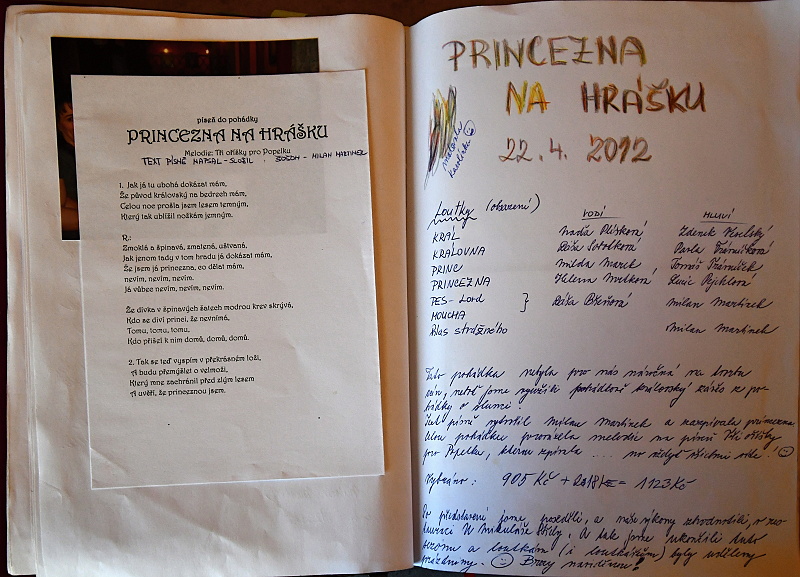 píseň do pohádky
PRINCEZNA NA HRÁŠKU
Melodie: Tři oříšky pro Popelku
TEXT PÍSNĚ NAPSAL - SLOŽIL : SOĎOH - MILAN MARTÍNEK
1. Jak já tu ubohá dokázat mám,
Že původ královský na bedrech mám,
Celou noc prošla jsem lesem temným,
Který tak ublížil nožkám jemným.
R.:
Zmoklá a špinavá, zmatená, uštvaná,
Jak jenom tady v tom hradu já dokázat mám,
Že jsem já princezna, co dělat mám,
nevím, nevím, nevím.
Já vůbec nevím, nevím, nevím.
Že dívka v špinavých šatech modrou krev skrývá,
Kdo se diví princi, že nevnímá,
Tomu, tomu, tomu,
Kdo přišel k nim domů, domů, domů.
2. Tak se teď vyspím v překrásném loži,
A budu přemýšlet o velmoži,
Který mne zachránil před zlým lesem
A uvěří, že princeznou jsem.
PRINCEZNA
NA HRÁŠKU
22. 4. 2012
malovala
Karolínka
Loutky (obsazení) VODÍ MLUVÍ
KRÁL Naďa Plísková Zdenek
KRÁLOVNA Sobotková Pavla Trávníčková
PRINC Milda Marek Tomáš Trávníček
PRINCEZNA Helena Lucie Rejchlová
PES - Lord } Břeňová Milan Martínek
MOUCHA
Hlas strážného Milan Martínek
Tato pohádka nebyla pro nás náročná na
neboť jsme využili pohádkově královský zámek z po-
hádky o
Text písně vytvořil Milan Martínek a nazpívala princezna.
Celou pohádku provázela melodie na píseň Tři oříšky
pro Popelku, kterou zpívala .... no vždyť všichni víte.!
Vybráno : 905 Kč + 218 Kč = 1123 Kč
Po představení jsme poseděli, a naše výkony zhodnotili, v res-
tauraci U Mikuláše A tak jsme ukončili tuto
sezonu a loutkám (i loutkářům) byly uděleny
prázdniny. Brzy nashledanou!